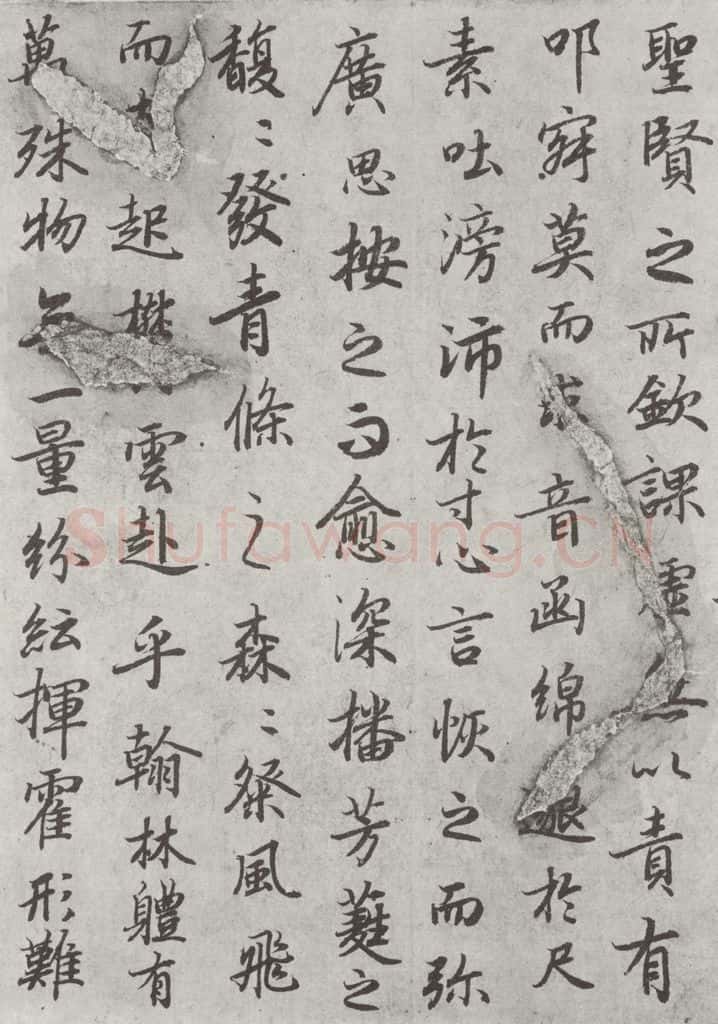 聖賢之所欽課虛以責有
叩寂莫而求音函綿邈於尺
素吐滂沛於寸心言恢之而弥
廣思按之而愈深播芳蕤之
馥〻發青條之森〻粲風飛
而起雲赴乎翰林體有
萬殊物一量紛紜揮霍形難
Shufawang.CN